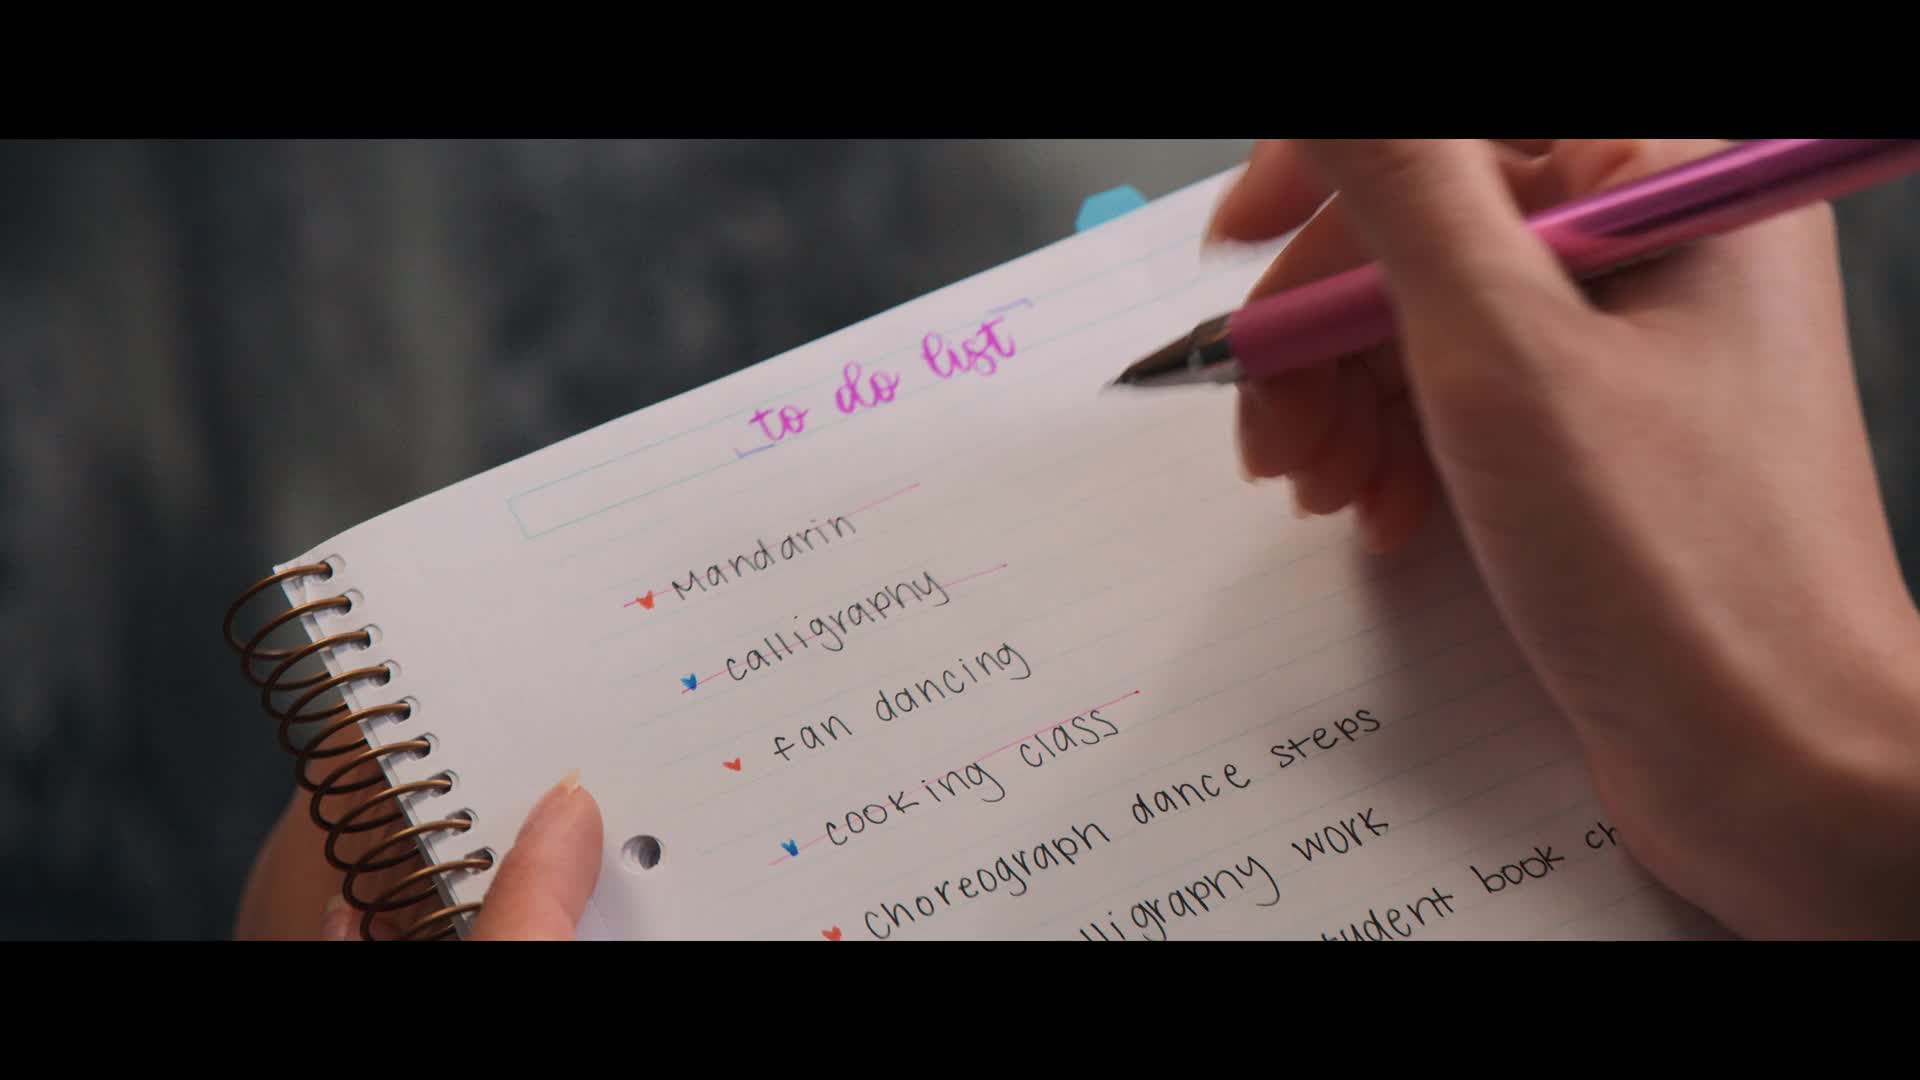 to do list
Mandarin
calligraphy
fan dancing
cooking class
choreograph dance steps
work
book